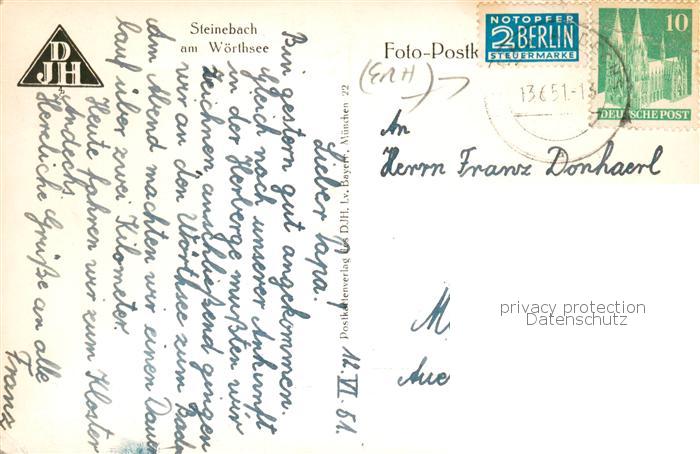 D
JH
Steinebach
am Wörthsee
12. VI. 51.
Lieber Papa!
Bin gestern gut angekommen.
Gleich nach unserer Ankunft
in der Herberge mußten wir
zeichnen anschließend gingen
wir an den Wörthsee zum Baden
Am Abend machten wir einen Dauer
lauf über zwei Kilometer.
Heute fahren wir zum Kloster
Andechs.
Herzliche Grüße an alle
Franz
Postkartenverlag des DJH, Lv. Bayern, München 22
Foto-Postk
NOTOPFER
2 BERLIN
STEUERMARKE
10
DEUTSCHE POST
13.6.51.-13
An
Herrn Franz Donhaerl
M
Aue
privacy protection
Datenschutz